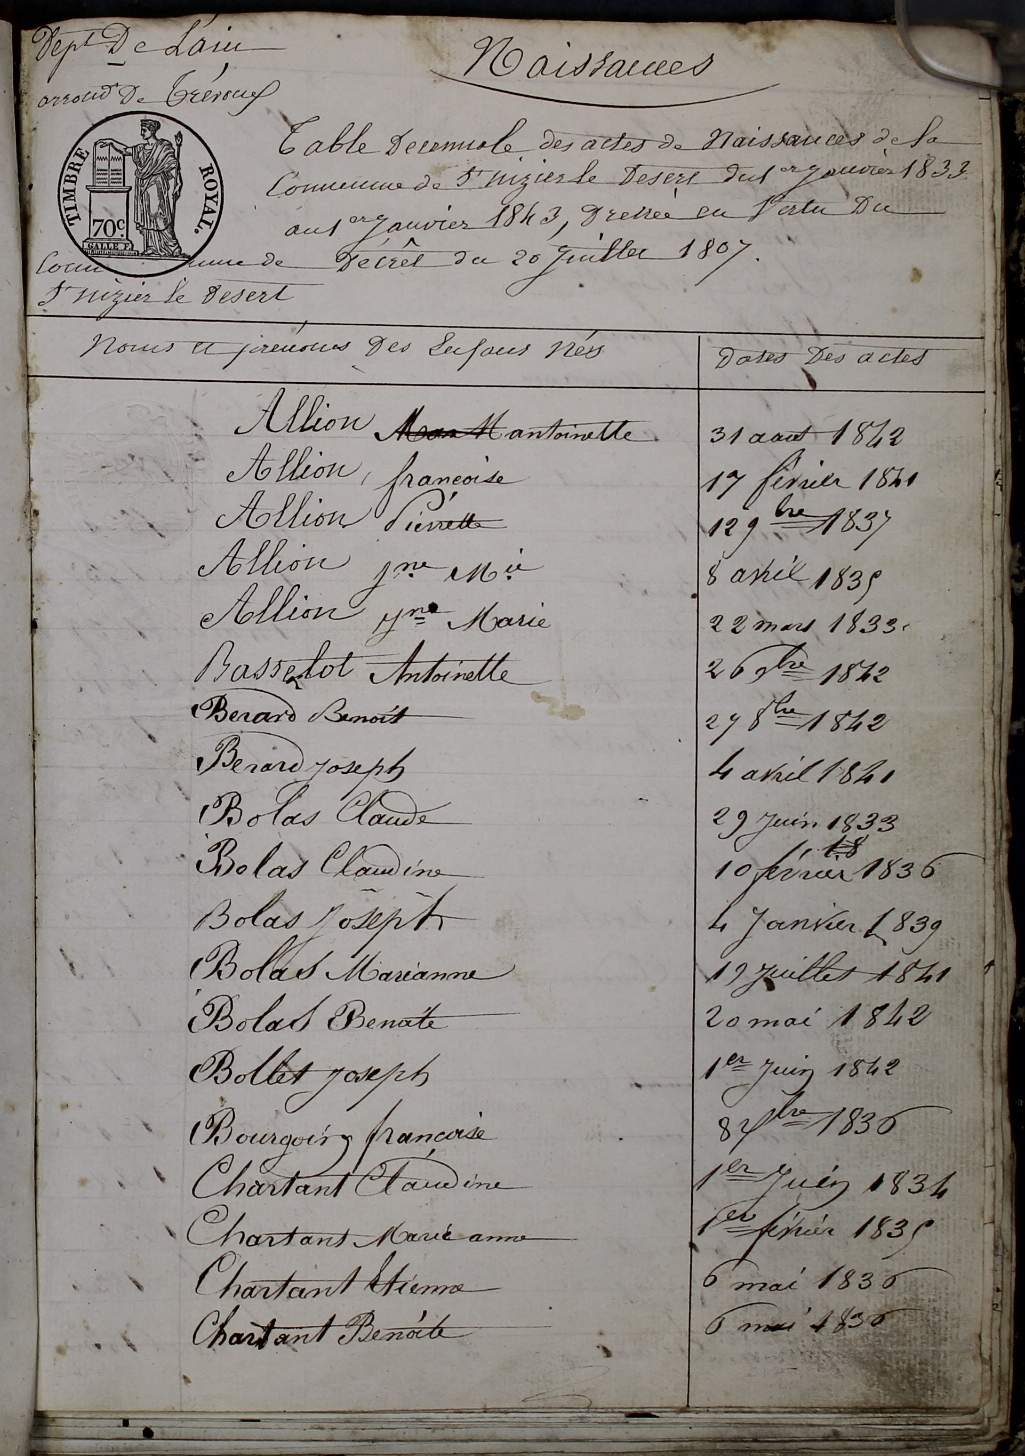 Dept De Lain
arrond De Trévoux
Naissances
TIMBRE ROYAL.
70c.
Table Decennale des actes de Naissances de la
Commune de St nizier le Desert du 1er Janvier 1833
au 1er Janvier 1843, Dressée en Vertu Du
Décrêt du 20 Juillet 1807.
Commune de
St nizier le Desert
Noms et prénoms Des Enfans Nés
Dates Des actes
Allion M antoinette 31 aout 1842
Allion, françoise 17 février 1841
Allion Pierrette 12 9bre 1837
Allion jne Mie 8 avril 1835
Allion jne Marie 22 mars 1833.
Basselot Antoinette 26 9bre 1842
Berard Benoit 27 8bre 1842
Berard joseph 4 avril 1841
Bolas Claude 29 Juin 1833
Bolas Claudine 10 février 1836
Bolas Joseph 4 Janvier 1839
Bolas Marianne 19 Juillet 1841
Bolas Benoite 20 mai 1842
Bollet joseph 1er Juin 1842
Bourgoin françoise 8 xbre 1836
Chartant Claudine 1er Juin 1834
Chartant Marie anne 1er février 1835
Chartant Etienne 6 mai 1836
Chartant Benoite 6 mai 1836